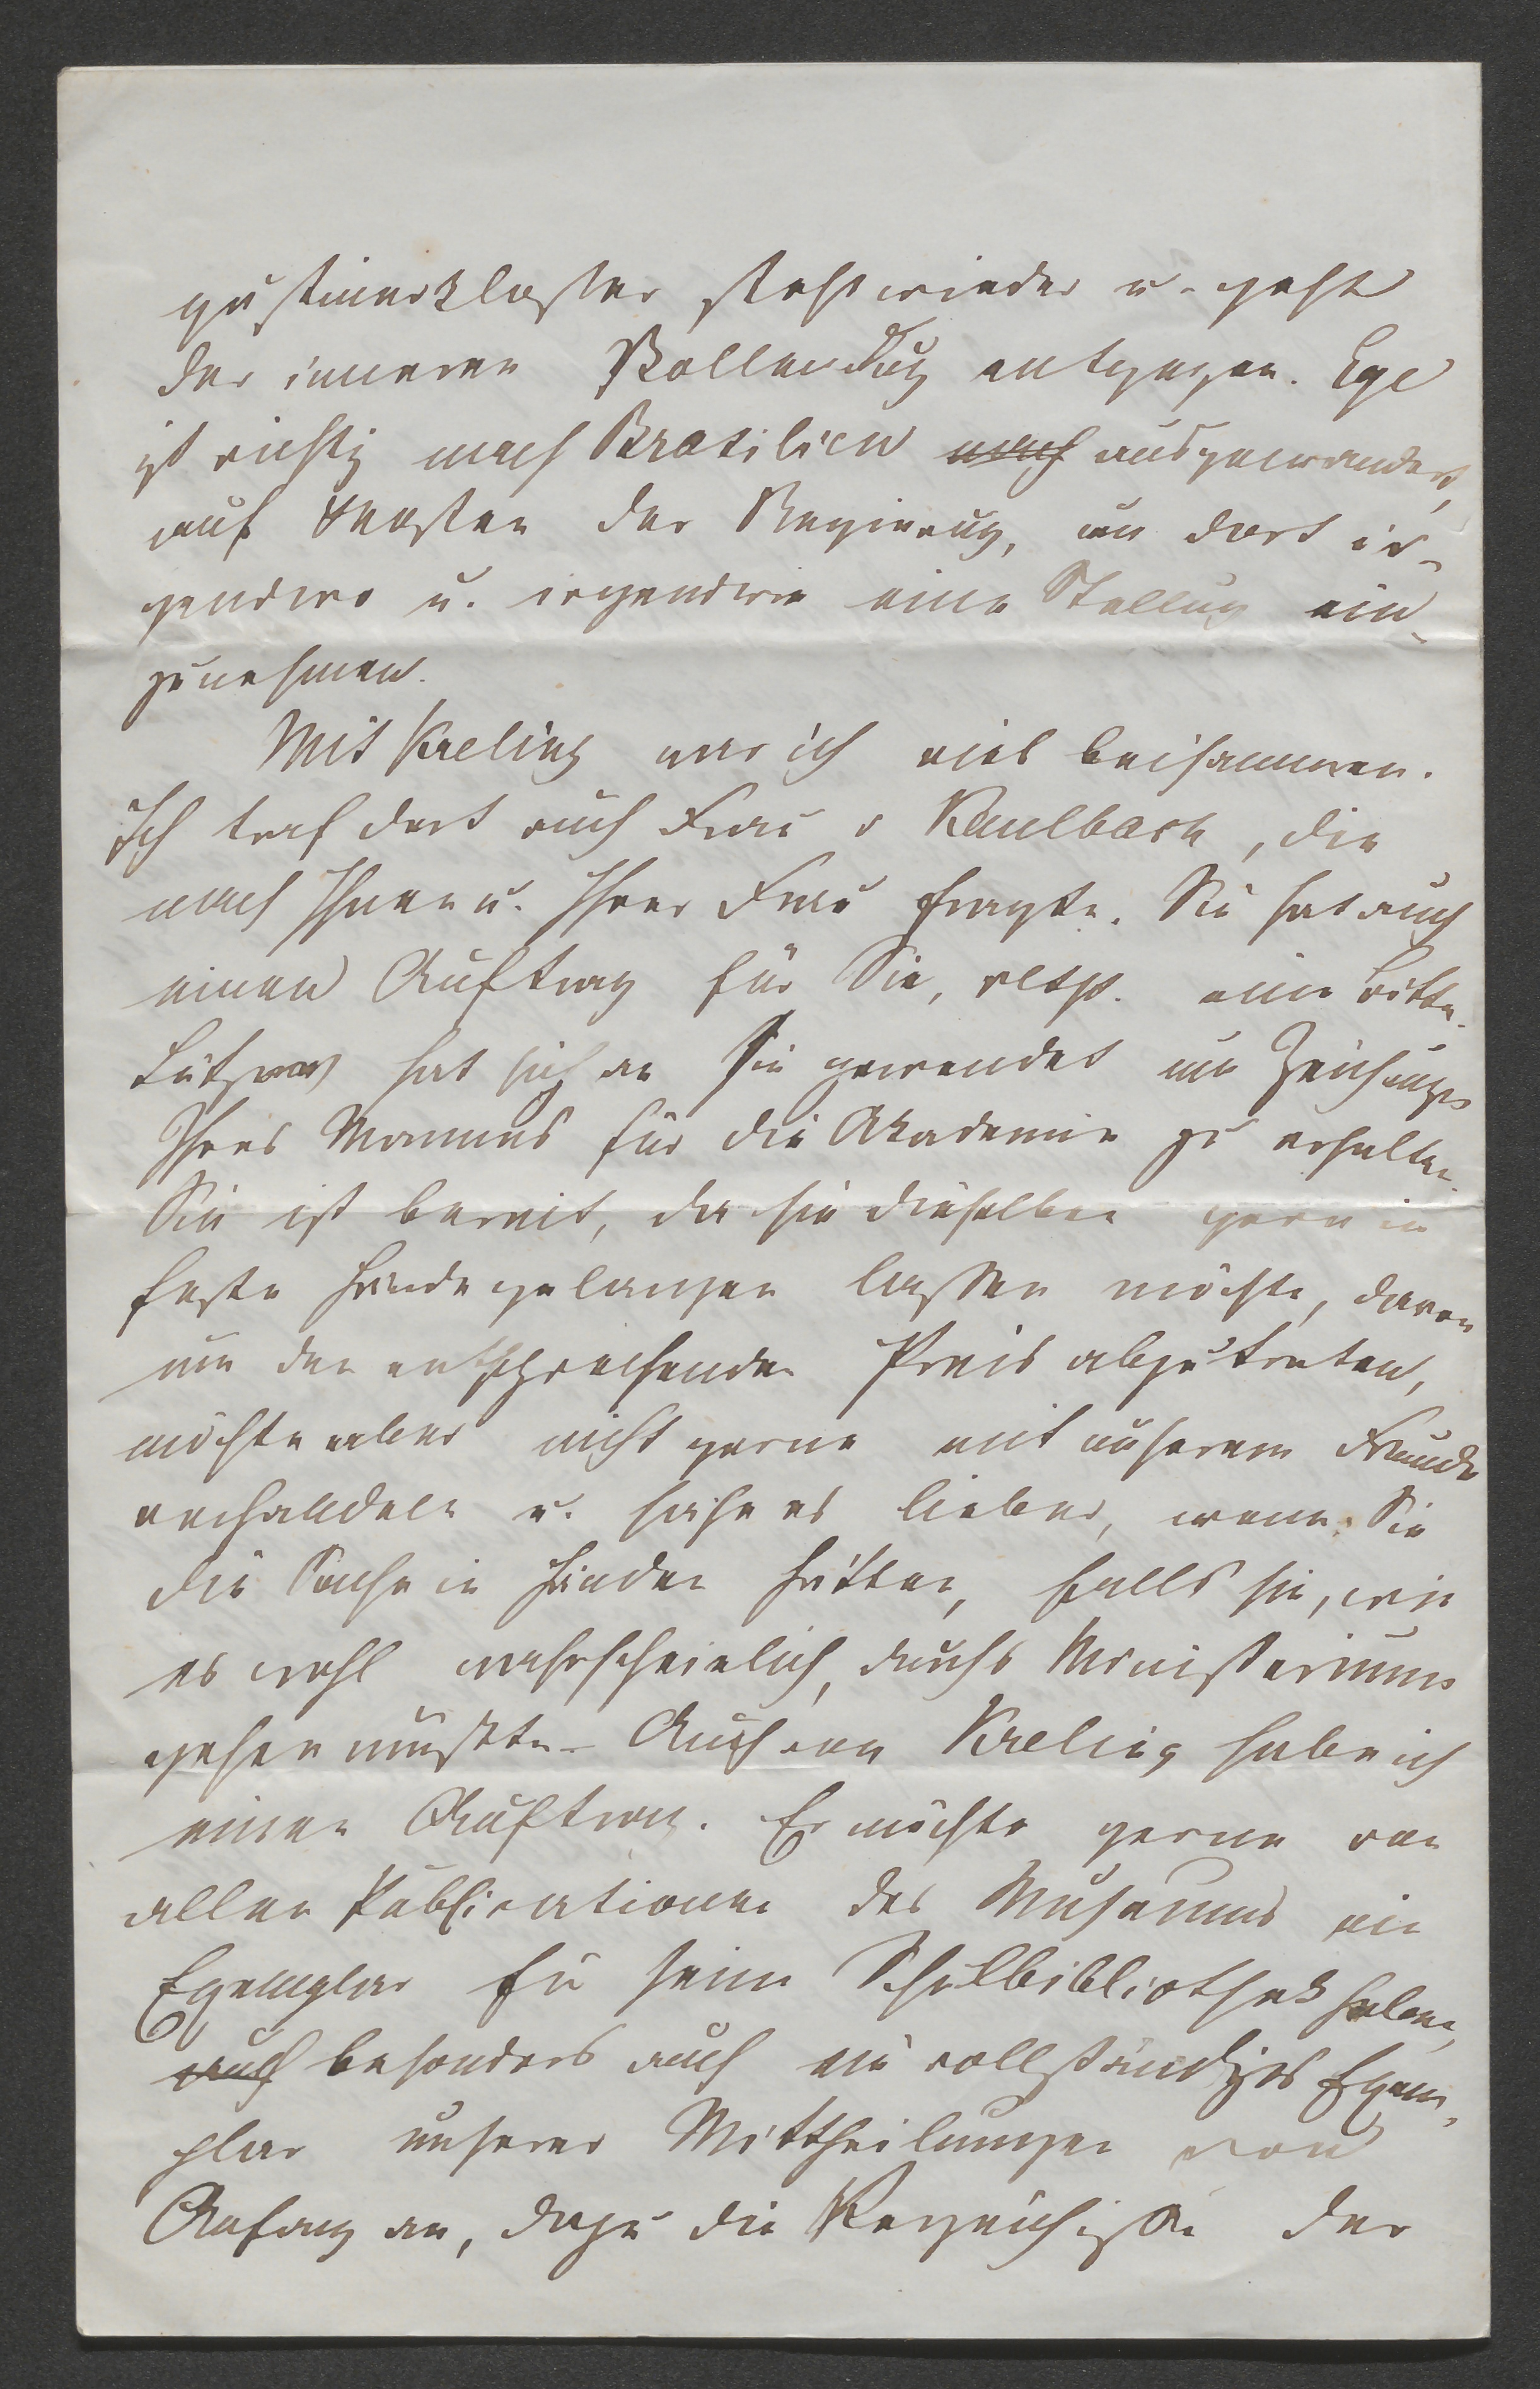 gustinerkloster steht wieder u. geht
der inneren Vollendug entgegen. Ege
ist richtig nach Brasilien nach ausgewandert,
auf Kosten der Regierug, um dort ir-
gendwo u. irgendwie eine Stellug ein-
zunehmen.
Mit Kreling war ich viel beisammen.
Ich traf dort auch Frau v Kaulbach, die
nach Ihnen u. Ihrer Frau fragte. Sie hat auch
einen Auftrag für Sie, resp. eine Bitte.
Lützow hat sich an sie gewendet um Zeichungen
Ihres Mannes für die Akademie zu erhalten.
Sie ist bereit, da sie dieselben gern in
feste Hände gelangen lassen möchte, davon
um den entsprechenden Preis abzutreten,
möchte aber nicht gerne mit unserem Freunde
verhandeln u. sähe es lieber, wenn Sie
die Sache in Händen hätten, falls sie, wie
es wohl wahrscheinlich, durchs Ministerium
gehen müßte. – Auch von Kreling habe ich
einen Auftrag. Er möchte gerne von
allen Publicationen des Museums ein
Exemplar für seine Schulbibliothek haben,
auch besonders auch ein vollständiges Exem-
plar unserer Mittheilungen von
Anfang an, dazu die Verzeichisse der